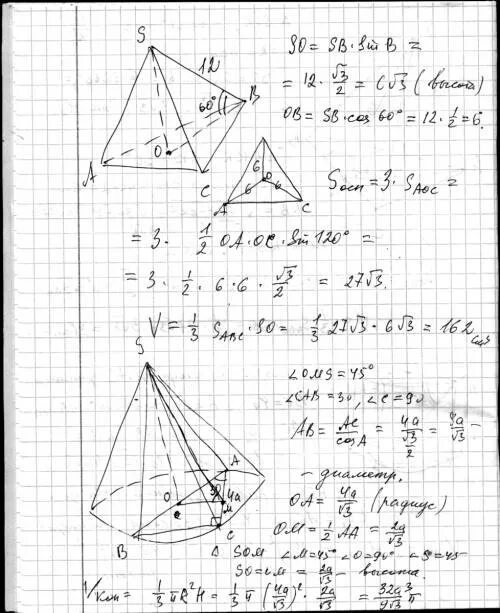 S
12
60°
B
O
A
C
SO = SB · Sin B =
= 12 · √3/2 = 6√3 (высота)
OB = SB · cos 60° = 12 · 1/2 = 6.
6
O
6 6
A C
Sосн = 3 · S AOC =
= 3 · 1/2 OA · OC · Sin 120° =
= 3 · 1/2 · 6 · 6 · √3/2 = 27√3.
V = 1/3 S ABC · SO = 1/3 27√3 · 6√3 = 162 см³
S
A
30
4a
O
M
B
C
∠OMS = 45°
∠CAB = 30, ∠C = 90
AB = AC/cosA = 4a/(√3/2) = 8a/√3 –
– диаметр.
OA = 4a/√3 (радиус)
OM = 1/2 AA = 2a/√3
Δ SOM ∠M = 45° ∠O = 90° ∠S = 45
SO = OM = 2a/√3 – высота.
Vкон = 1/3 πR²H = 1/3 π (4a/√3)² · 2a/√3 = 32a³/9√3 π